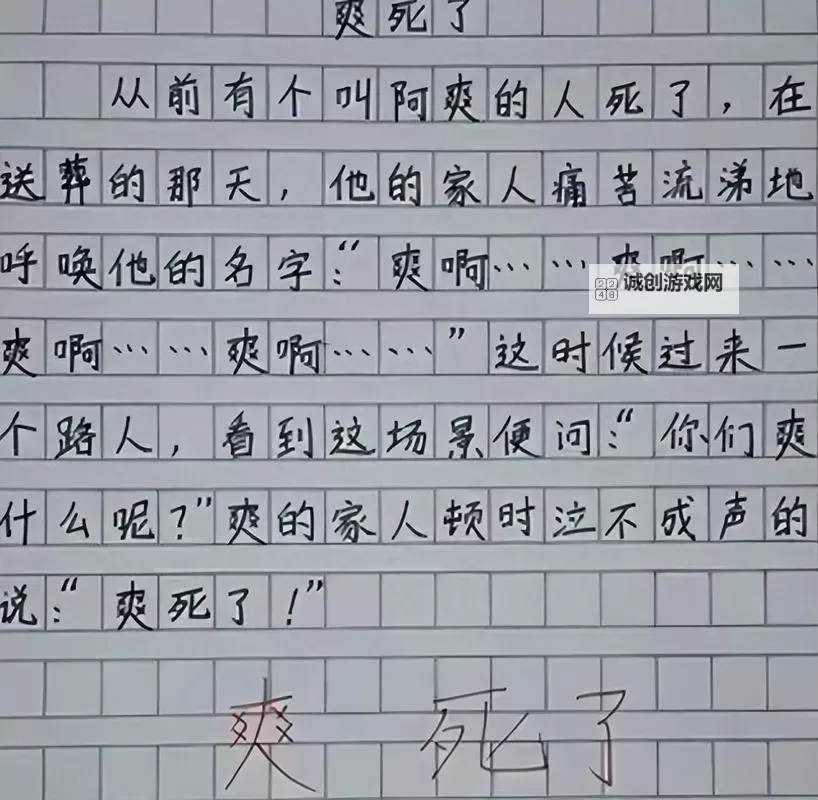 爽死了
从前有个叫阿爽的人死了，在
送葬的那天，他的家人痛苦流涕地
呼唤他的名字：“爽啊……爽啊……
爽啊……爽啊……”这时候过来一
个路人，看到这场景便问：“你们爽
什么呢？”爽的家人顿时泣不成声的
说：“爽死了！”
爽 死了
2248 诚创游戏网